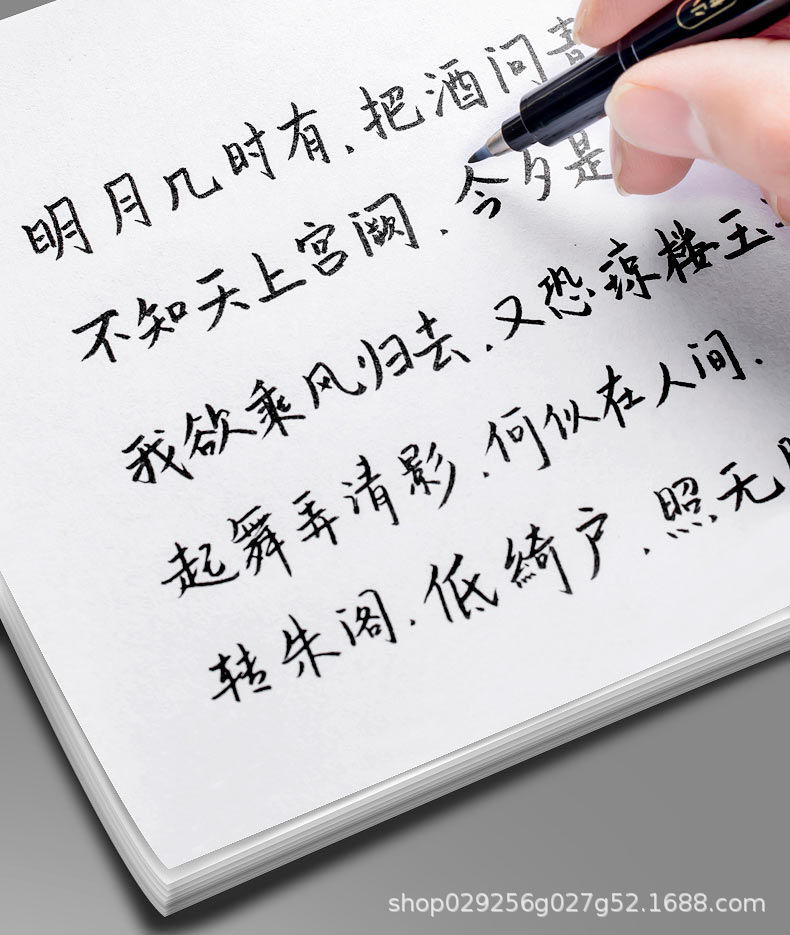 明月几时有.把酒问青
不知天上宫阙.今夕是
我欲乘风归去.又恐琼楼玉
起舞弄清影.何似在人间.
转朱阁.低绮户.照无
shop029256g027g52.1688.com